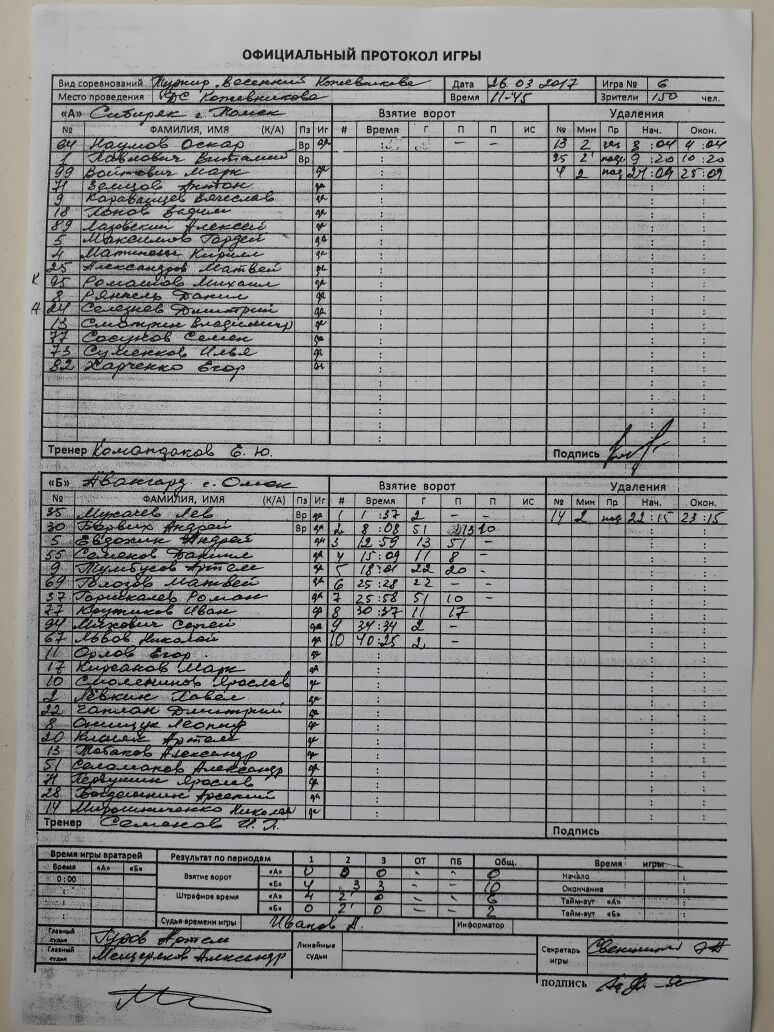 ОФИЦИАЛЬНЫЙ ПРОТОКОЛ ИГРЫ
Вид соревнований Турнир Весенний Дата 26 03 2017 Игра № 6
Место проведения Время 11-45 Зрители 150 чел.
«А» Сибиряк г. Томск Взятие ворот Удаления
№ ФАМИЛИЯ, ИМЯ (К/А) Пз Иг # Время Г П П ИС № Мин Пр Нач. Окон.
64 Наумов Оскар Вр да – – 13 2 8 :04 :04
1 Павлович Виталий Вр 95 2' 9 :20 10 :20
99 Войтович Марк да 4 2 25 :09
71 Земцов Антон да
9 Вячеслав да
18 Попов Вадим да
89 Лазовский Алексей да
5 Максимов Гордей да
4 Кирилл да
25 Александров Матвей да
К 95 Ромашов Михаил да
8 Данил да
А 24 Селезнев Дмитрий да
13 Смотрин Владимир да
77 Сосунов Семен да
73 Суменков Илья да
82 Харченко Егор да
Тренер Е. Ю. Подпись
«Б» Авангард г. Омск Взятие ворот Удаления
№ ФАМИЛИЯ, ИМЯ (К/А) Пз Иг # Время Г П П ИС № Мин Пр Нач. Окон.
35 Лев Вр да 1 1 :37 2 – – 14 2 22 :15 23 :15
30 Андрей Вр да 2 8 :08 51 13 20
5 Евдохин Андрей да 3 12 :59 13 51 –
55 Семенов Даниил да 4 15 :09 11 8 –
9 Артем да 5 18 :01 22 20 –
69 Матвей да 6 25 :28 22 –
37 Роман да 7 25 :58 51 10 –
77 Крутиков Иван да 8 30 :37 11 17
94 Михович Сергей да 9 34 :34 2 –
67 Львов Николай да 10 40 :25 2 –
11 Орлов Егор да
17 Кирсанов Марк да
10 Ярослав да
2 Лёвкин Павел да
22 Чаплан Дмитрий да
8 Онищук Леонид да
20 Артем да
13 Александр да
51 Александр да
71 Ярослав да
28 Арсений да
14 Мирошниченко Николай да
Тренер Семенов И. П. Подпись
Время игры вратарей Результат по периодам 1 2 3 ОТ ПБ Общ. Время игры
Время «А» «Б» Взятие ворот «А» 0 0 0 - - 0 Начало
0 : 00 «Б» 4 3 3 - - 10 Окончание
Штрафное время «А» 4 2 0 - - 6 Тайм-аут «А»
«Б» 0 2 0 - - 2 Тайм-аут «Б»
Судья времени игры Иванов А. Информатор
Главный судья Гуров Артем Линейные судьи Секретарь игры
Главный судья Мещеряков Александр
ПОДПИСЬ